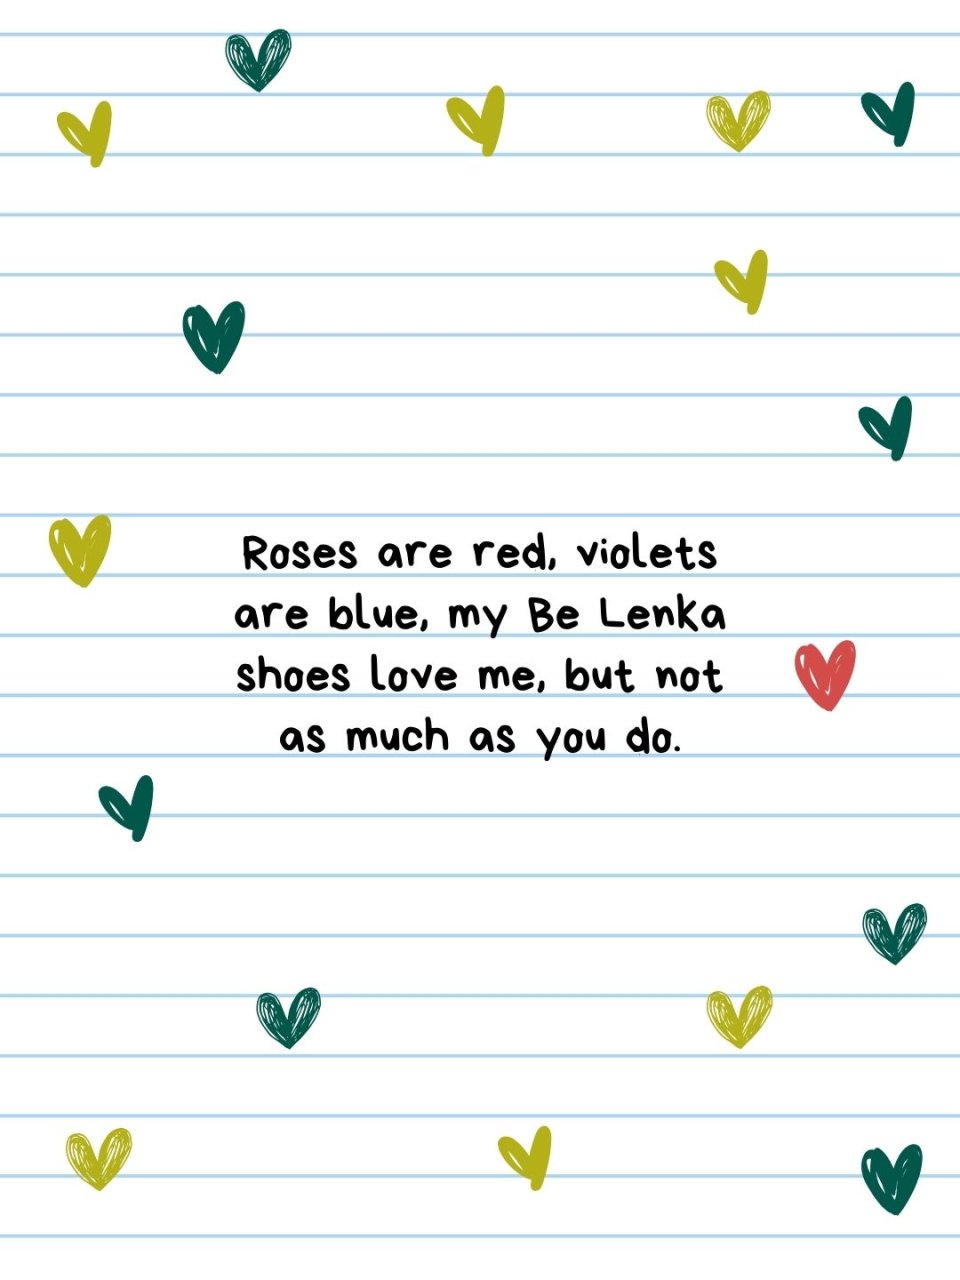 Roses are red, violets
are blue, my Be Lenka
shoes love me, but not
as much as you do.